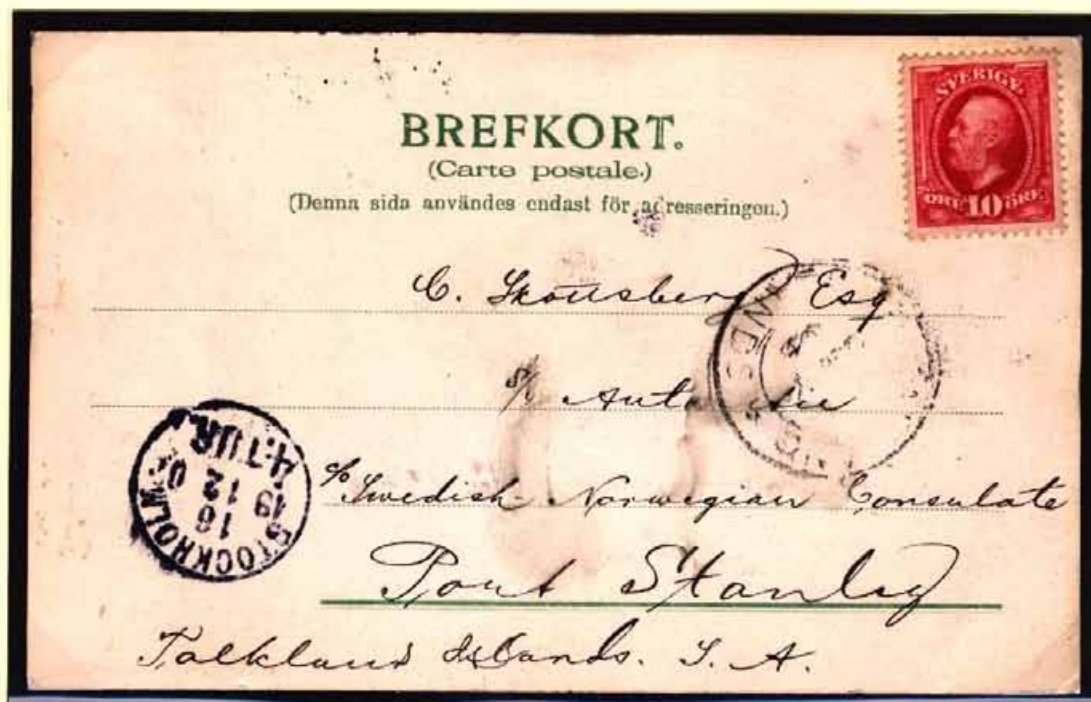 BREFKORT.
(Carte postale.)
(Denna sida användes endast för adresseringen.)
SVERIGE
ÖRE 10 ÖRE
C. Skottsberg Esq
s/s Antarctic
c/o Swedish-Norwegian Consulate
Port Stanley
Falkland Islands. S. A.
STOCKHOLM
16
12
19
4. TUR.